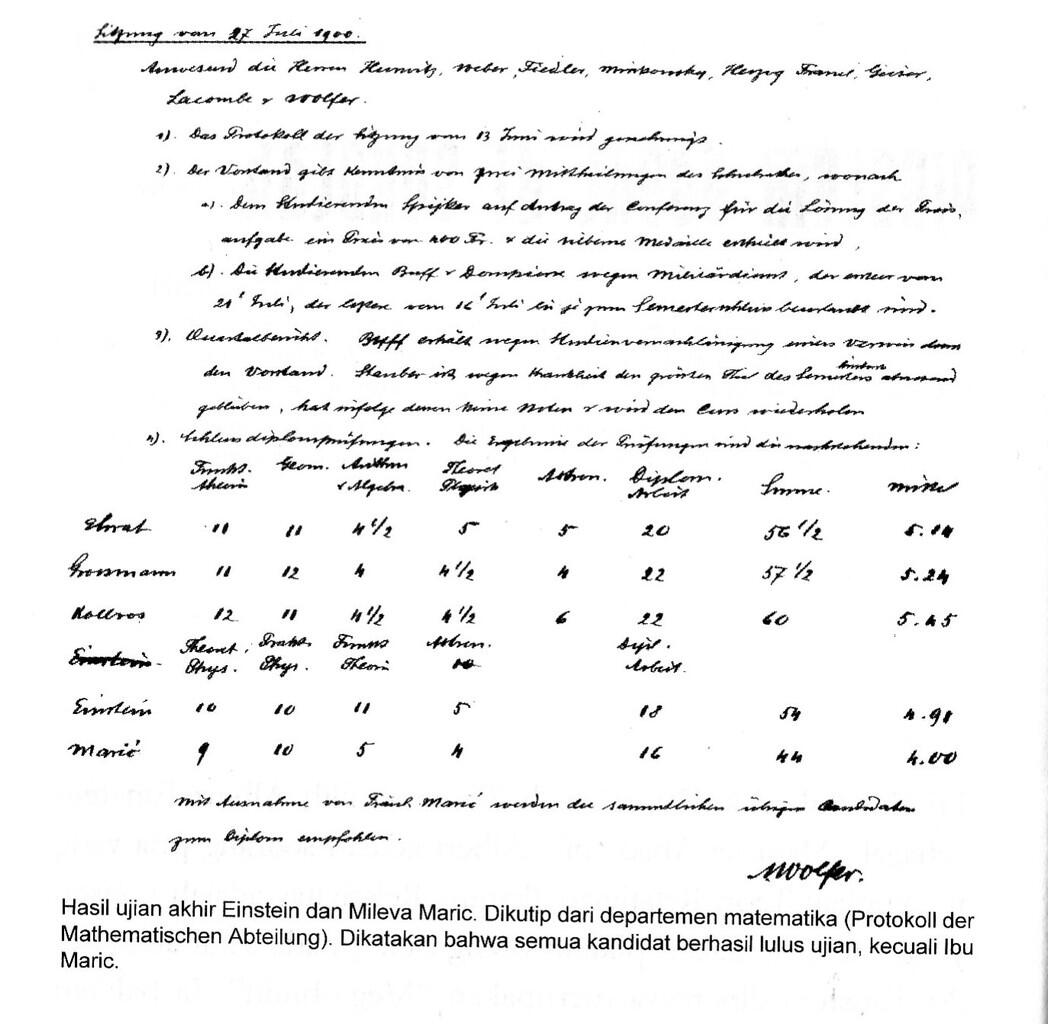 Sitzung vom 27 Juli 1900.
Anwesend die Herren Hurwitz, Weber, Fiedler, Minkowsky, Herzog, Franel, Geiser,
Lacombe & Wolfer.
1). Das Protokoll der Sitzung vom 13 Juni wird genehmigt.
2). Der Vorstand gibt Kenntnis von zwei Mittheilungen des Schulrathes, wonach
a). Dem Studierenden Spijker auf Antrag der Conferenz für die Lösung der Preis-
aufgabe ein Preis von 400 Fr. & die silberne Medaille erteilt wird,
b). Die Studierenden Buff & Dompierre wegen Militärdienst, der erster vom
21t Juli, der letztere vom 16t Juli bis je zum Semesterschluss beurlaubt sind.
3). Quartalbericht. Buff erhält wegen Studienvernachlässigung einen Verweis durch
den Vorstand. Stauber ist wegen Krankheit den grössten Theil des Semesters abwesend
geblieben, hat infolge dessen keine Noten & wird den Curs wiederholen
4). Schlussdiplomprüfungen. Die Ergebnisse der Prüfungen sind die nachstehenden:
Funkt. Theorie Geom. Arithm & Algebra. Theoret Physik Astron. Diplom. Arbeit Summe. Mittel
Ehrat 11 11 4 1/2 5 5 20 56 1/2 5.14
Grossmann 11 12 4 4 1/2 4 22 57 1/2 5.24
Kollros 12 11 4 1/2 4 1/2 6 22 60 5.45
Einstein Theoret. Phys. Prakt. Phys. Funkt Theorie Astron. 10 Dipl. Arbeit.
Einstein 10 10 11 5 18 54 4.91
Marić 9 10 5 4 16 44 4.00
Mit Ausnahme von Fräul. Marić werden die sammtlichen übrigen Candidaten
zum Diplom empfohlen.
AWolfer.
Hasil ujian akhir Einstein dan Mileva Maric. Dikutip dari departemen matematika (Protokoll der
Mathematischen Abteilung). Dikatakan bahwa semua kandidat berhasil lulus ujian, kecuali Ibu
Maric.